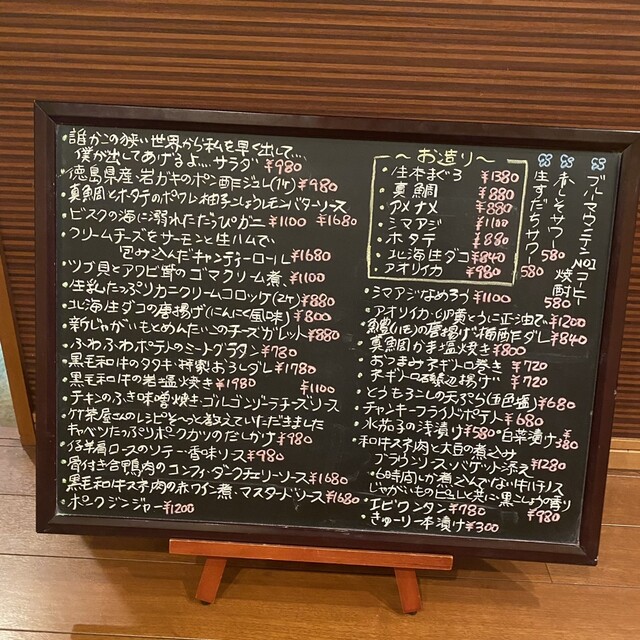 ・誰かこの狭い世界から私を早く出して…
僕が出してあげるよ…サラダ ¥980
・徳島県産・岩ガキのポン酢ジュレ(1ケ) ¥980
真鯛とホタテのポワレ柚子こしょうレモンバターソース
¥1680
・ビスクの海に溺れただっぴガニ ¥1100
・クリームチーズをサーモンと生ハムで
包み込んだキャンディーロール ¥1680
・ツブ貝とアワビ茸のゴマクリーム煮、¥1100
・生乳たっぷりカニクリームコロッケ(2ケ) ¥880
・北海生ダコの唐揚げ(にんにく風味) ¥800
・新じゃがいもとめんたいこのチーズガレット ¥880
・ふわふわポテトのミートグラタン ¥780
・黒毛和牛のタタキ・特製おろしダレ ¥1780
・黒毛和牛の岩塩焼き ¥1980
¥1100
・チキンのふき味噌焼き・ゴルゴンゾーラチーズソース
・竹茶屋さんのレシピをそーっと教えていただきました
キャベツたっぷりポークカツのだしかけ ¥980
・仔羊肩ロースのソテー香味ソース ¥980
・骨付き合鴨肉のコンフィ・ダークチェリーソース ¥1680
・黒毛和牛スネ肉の赤ワイン煮、マスタードソース ¥1680
・ポークジンジャー ¥1200
〜お造り〜
・生本まぐろ ¥1380
・真鯛 ¥880
・¥880
・シマアジ ¥1100
・ホタテ ¥880
・北海生ダコ ¥840
・アオリイカ ¥980
ブルーマウンテンNo1コーヒー焼酎 580
赤しそサワー 580
生すだちサワー 580
・シマアジなめろう ¥1100
・アオリイカ・卵黄とうに正油で ¥1200
・鱧(はも)の唐揚げ・梅酢ダレ ¥840
・真鯛カマ塩焼き ¥800
・おつまみネギトロ巻き ¥720
・ネギトロ磯辺揚げ ¥720
・とうもろこしの天ぷら(五色塩) ¥680
・チャンキーフライドポテト ¥680
・水茄子の浅漬け ¥580・白菜漬け 380
・和牛スネ肉と大豆の煮込み
ブラウンソース・バゲット添え ¥1280
・6時間しか煮込んでない牛ハチノス
じゃがいものピュレと共に黒こしょうの香り
¥980
・エビワンタン ¥980
・きゅーり一本漬け ¥300